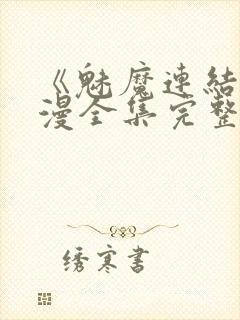 《魅魔連結
漫全集完整
绣寒書